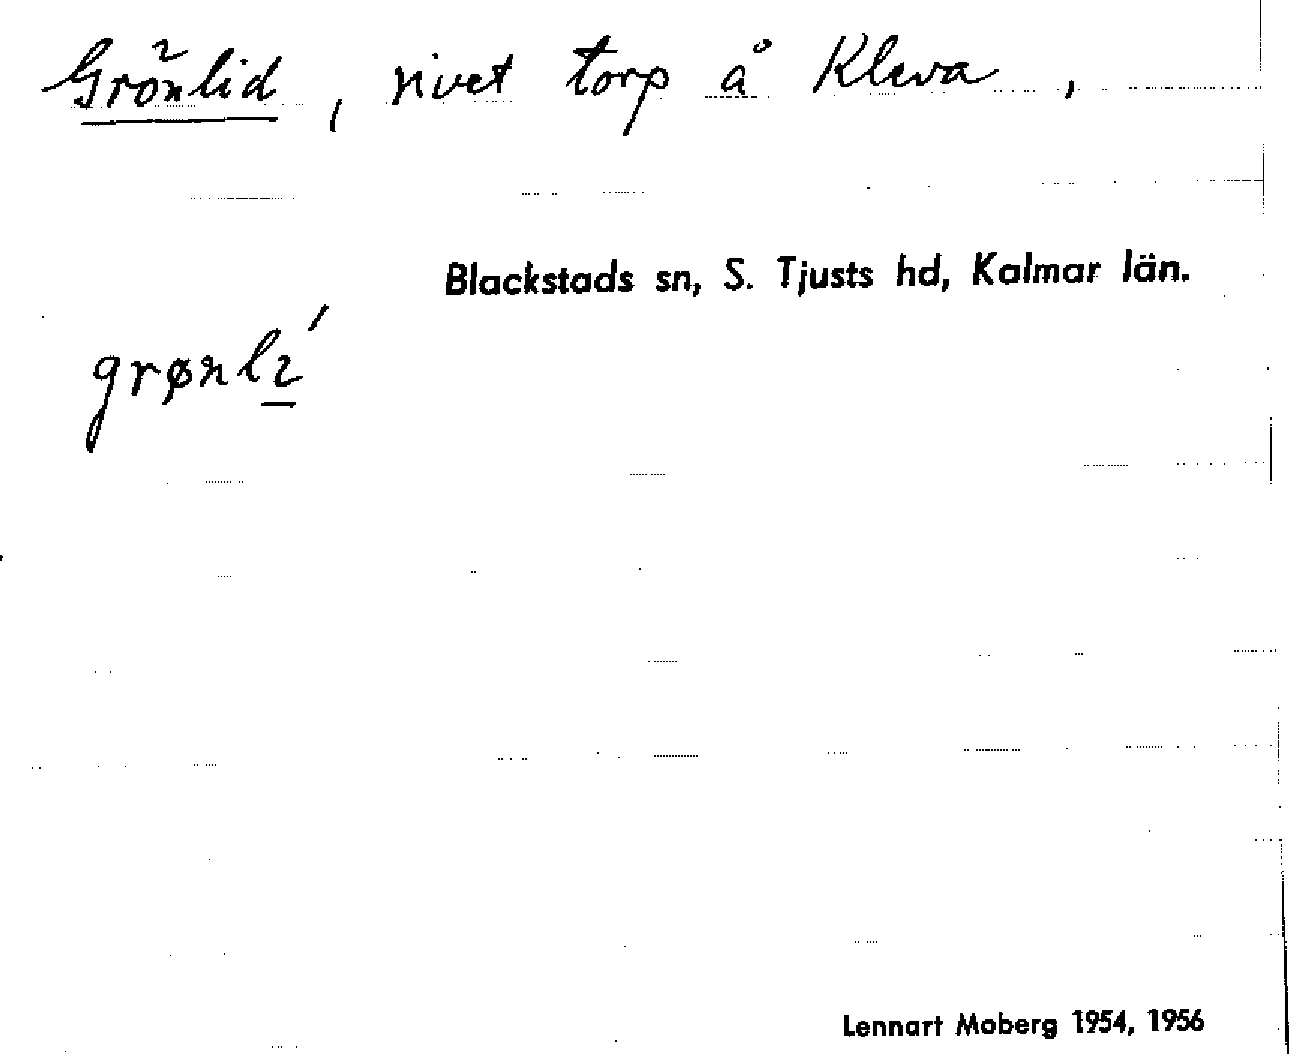 Grönlid, rivet torp å Kleva,
Blackstads sn, S. Tjusts hd, Kalmar län.
grønlı̲́
Lennart Moberg 1954, 1956